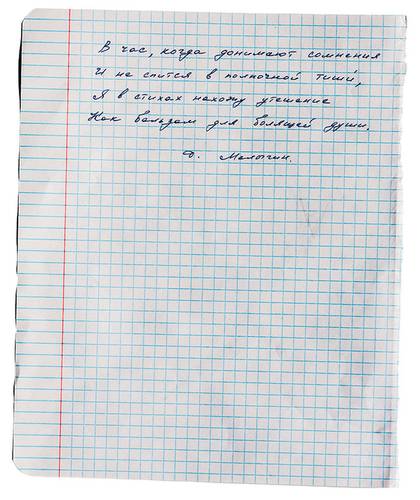 В час, когда донимают сомнения
И не спится в полночной тиши,
Я в стихах нахожу утешение
Как бальзам для болящей души.
Ф. Малыгин.